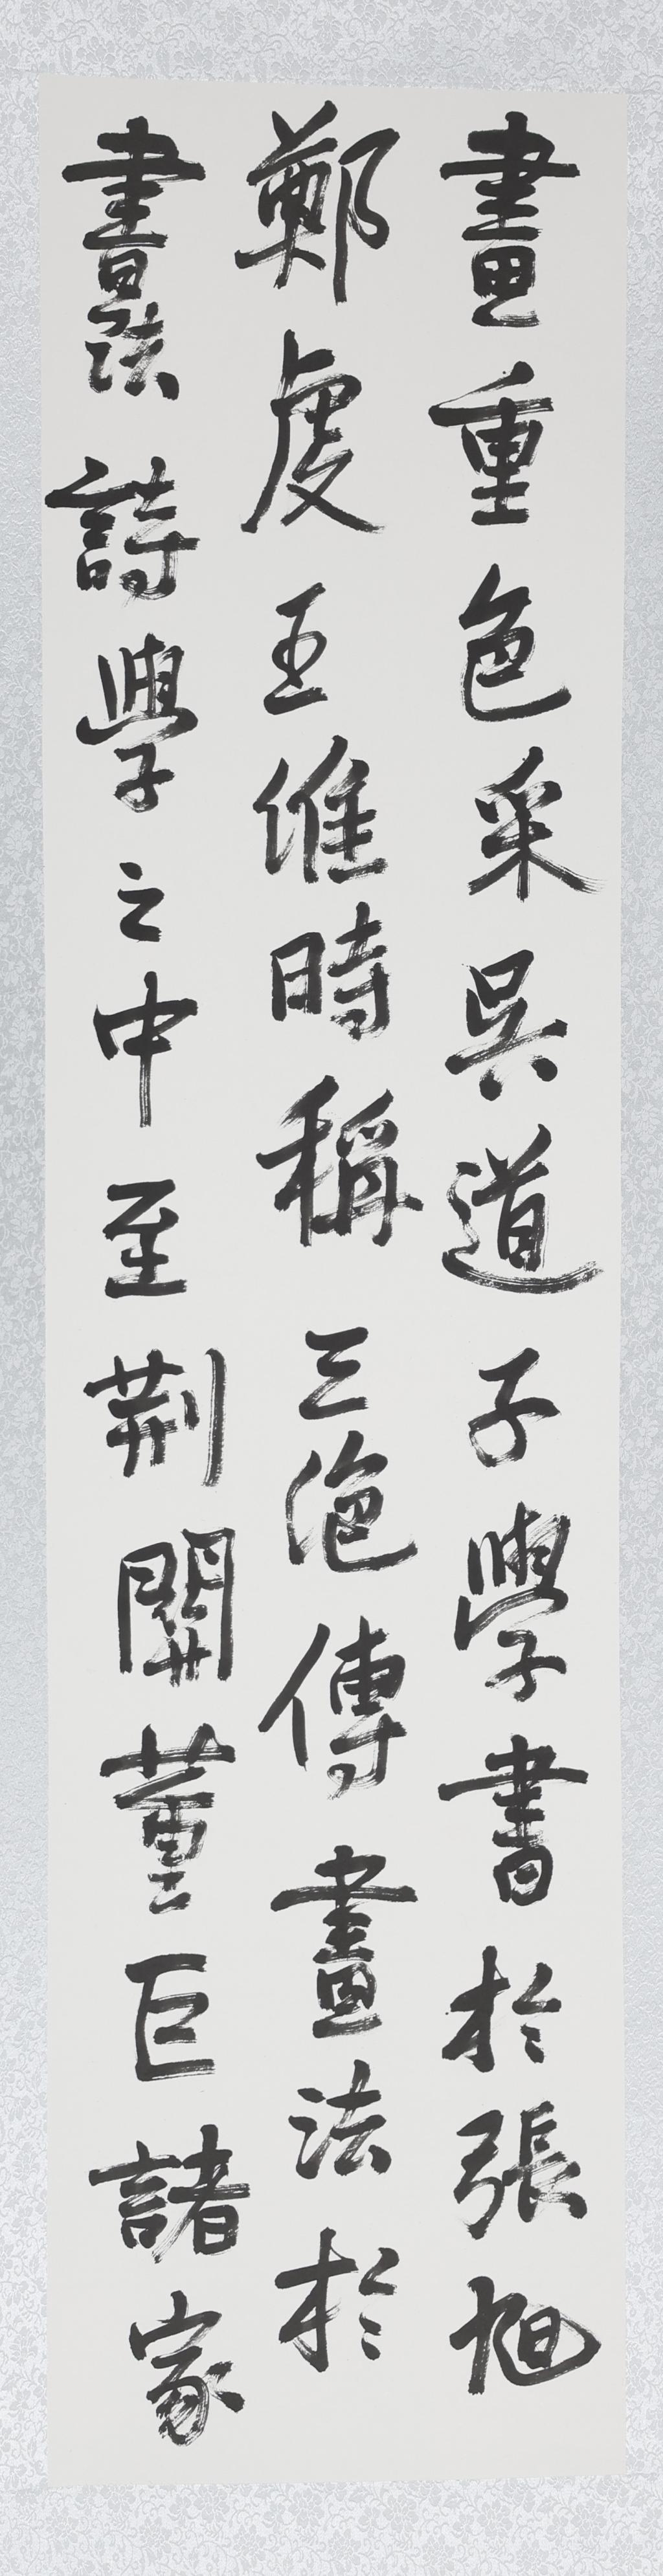 畫重色采吳道子學書於張旭
鄭虔王維時稱三絕傳畫法於
書法詩學之中至荊關董巨諸家